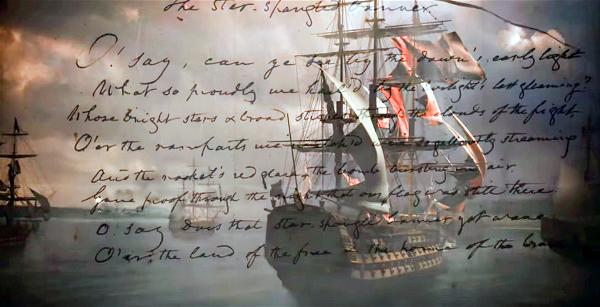 The Star-Spangled Banner.
O! say, can ye see by the dawn's early light
What so proudly we hail'd by the twilight's last gleaming?
Whose bright stars & broad stripes through the clouds of the fight
O'er the ramparts we watch'd were so gallantly streaming
And the rocket's red glare the bomb bursting in air.
Gave proof through the night that our flag was still there
O! say does that star spangled banner yet wave
O'er the land of the free & the home of the brave